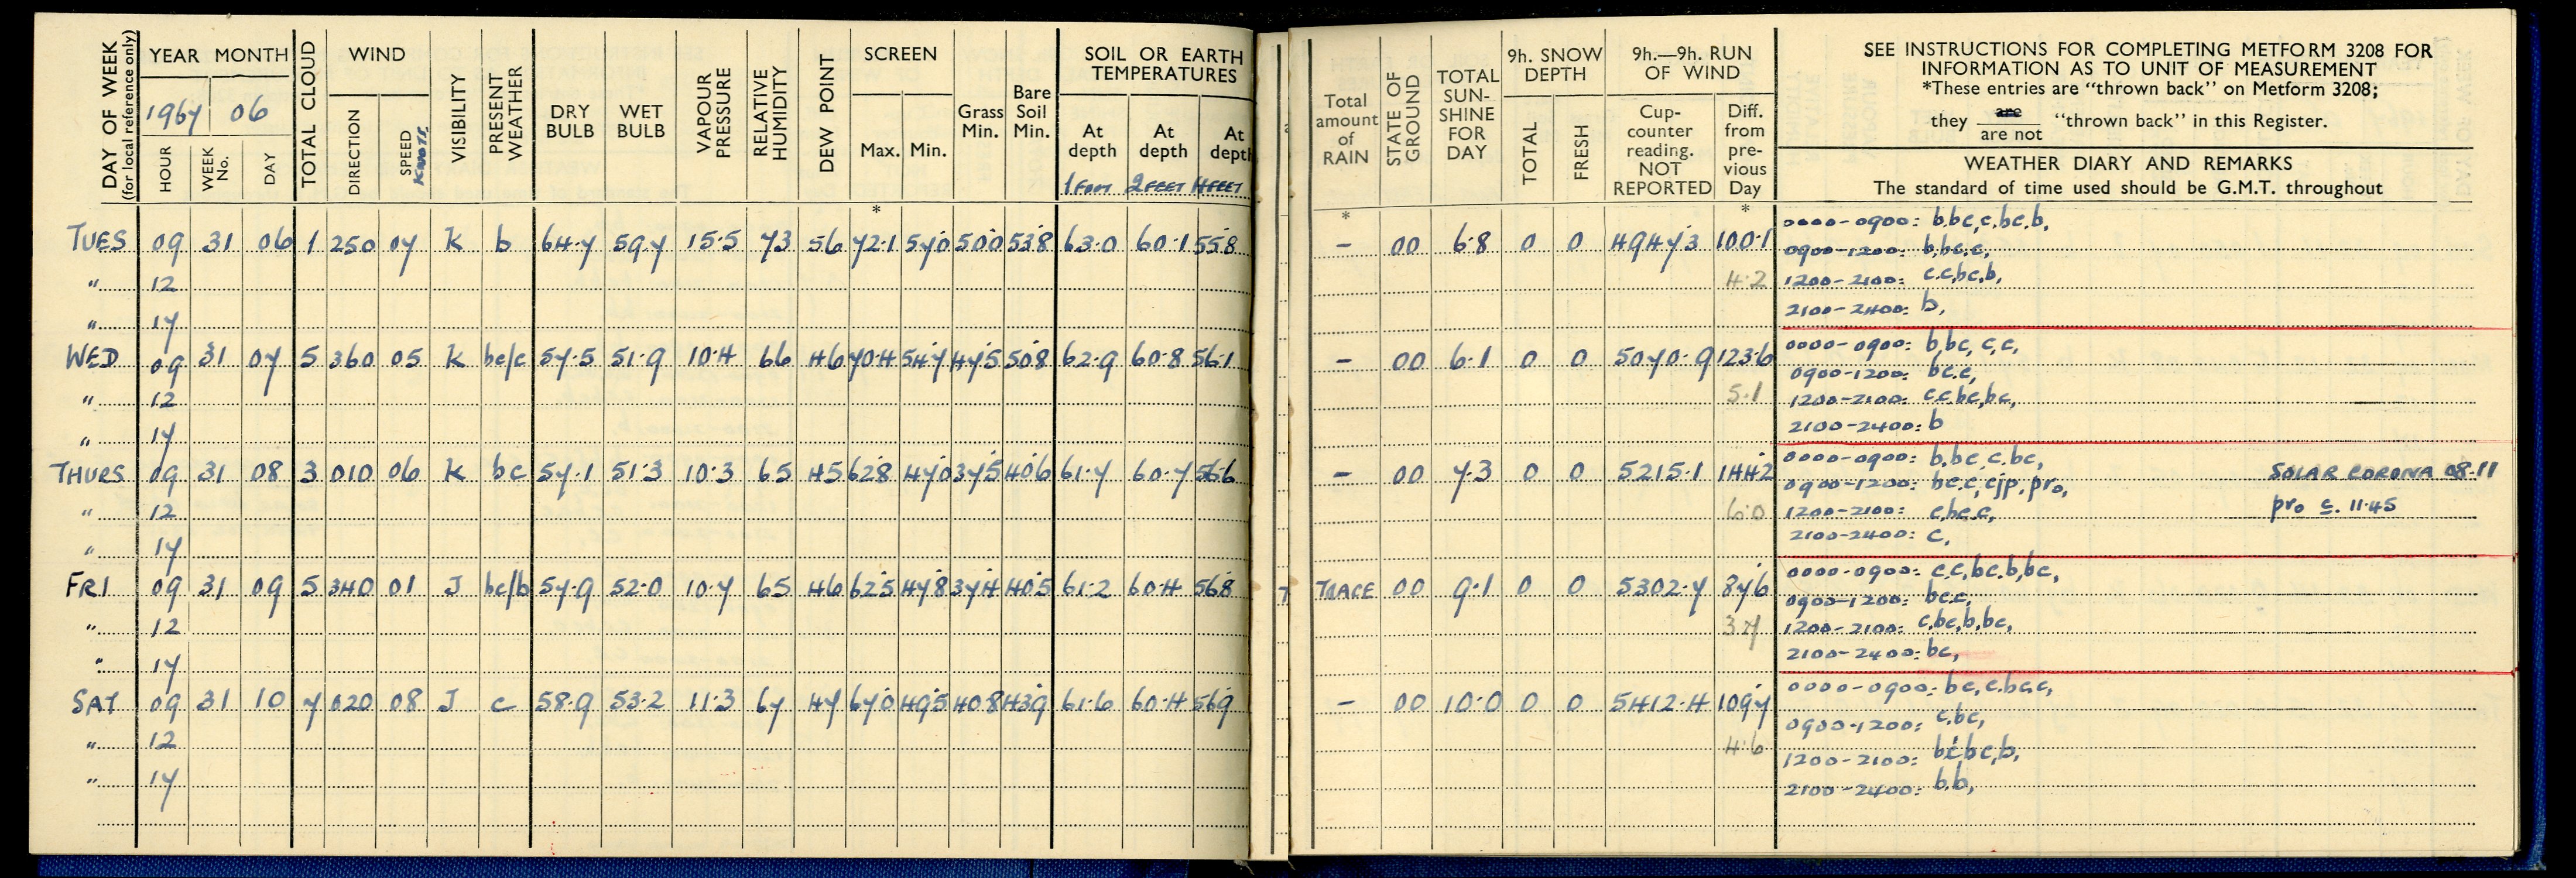 DAY OF WEEK
(for local reference only)
YEAR MONTH
1967 06
HOUR
WEEK No.
DAY
TOTAL CLOUD
WIND
DIRECTION
SPEED KNOTS
VISIBILITY
PRESENT WEATHER
DRY BULB
WET BULB
VAPOUR PRESSURE
RELATIVE HUMIDITY
DEW POINT
SCREEN
Max. Min.
*
Grass Min.
Bare Soil Min.
SOIL OR EARTH TEMPERATURES
At depth 1 FOOT
At depth 2 FEET
At depth 4 FEET
Total amount of RAIN
*
STATE OF GROUND
TOTAL SUN-SHINE FOR DAY
9h. SNOW DEPTH
TOTAL
FRESH
9h.—9h. RUN OF WIND
Cup-counter reading. NOT REPORTED
Diff. from pre-vious Day
*
SEE INSTRUCTIONS FOR COMPLETING METFORM 3208 FOR
INFORMATION AS TO UNIT OF MEASUREMENT
*These entries are "thrown back" on Metform 3208;
they are / are not "thrown back" in this Register.
WEATHER DIARY AND REMARKS
The standard of time used should be G.M.T. throughout
TUES 09 31 06 1 250 07 K b 64.7 59.7 15.5 73 56 72.1 57.0 50.0 53.8 63.0 60.1 55.8 – 00 6.8 0 0 4947.3 100.1 0000-0900: b,bc,c,bc,b,
0900-1200: b,bc,c,
" 12 4.2 1200-2100: c,c,bc,b,
" 17 2100-2400: b,
WED 09 31 07 5 360 05 K bc/c 57.5 51.9 10.4 66 46 70.4 54.7 47.5 50.8 62.9 60.8 56.1 – 00 6.1 0 0 5070.9 123.6 0000-0900: b,bc,c,c,
0900-1200: bc,c,
" 12 5.1 1200-2100: c,c,bc,bc,
" 17 2100-2400: b
THURS 09 31 08 3 010 06 K bc 57.1 51.3 10.3 65 45 62.8 47.0 37.5 40.6 61.7 60.7 56.6 – 00 7.3 0 0 5215.1 144.2 0000-0900: b,bc,c,bc, SOLAR CORONA 08.11
0900-1200: bc,c,cjp,pro,
" 12 6.0 1200-2100: c,bc,c, pro c. 11.45
" 17 2100-2400: c,
FRI 09 31 09 5 340 01 J bc/b 57.9 52.0 10.7 65 46 62.5 47.8 37.4 40.5 61.2 60.4 56.8 TRACE 00 9.1 0 0 5302.7 87.6 0000-0900: c,c,bc,b,bc,
0900-1200: bc,c,
" 12 3.7 1200-2100: c,bc,b,bc,
" 17 2100-2400: bc,
SAT 09 31 10 7 020 08 J c 58.9 53.2 11.3 67 47 67.0 49.5 40.8 43.9 61.6 60.4 56.9 – 00 10.0 0 0 5412.4 109.7 0000-0900: bc,c,bc,c,
0900-1200: c,bc,
" 12 4.6 1200-2100: bc,bc,b,
" 17 2100-2400: b,b,